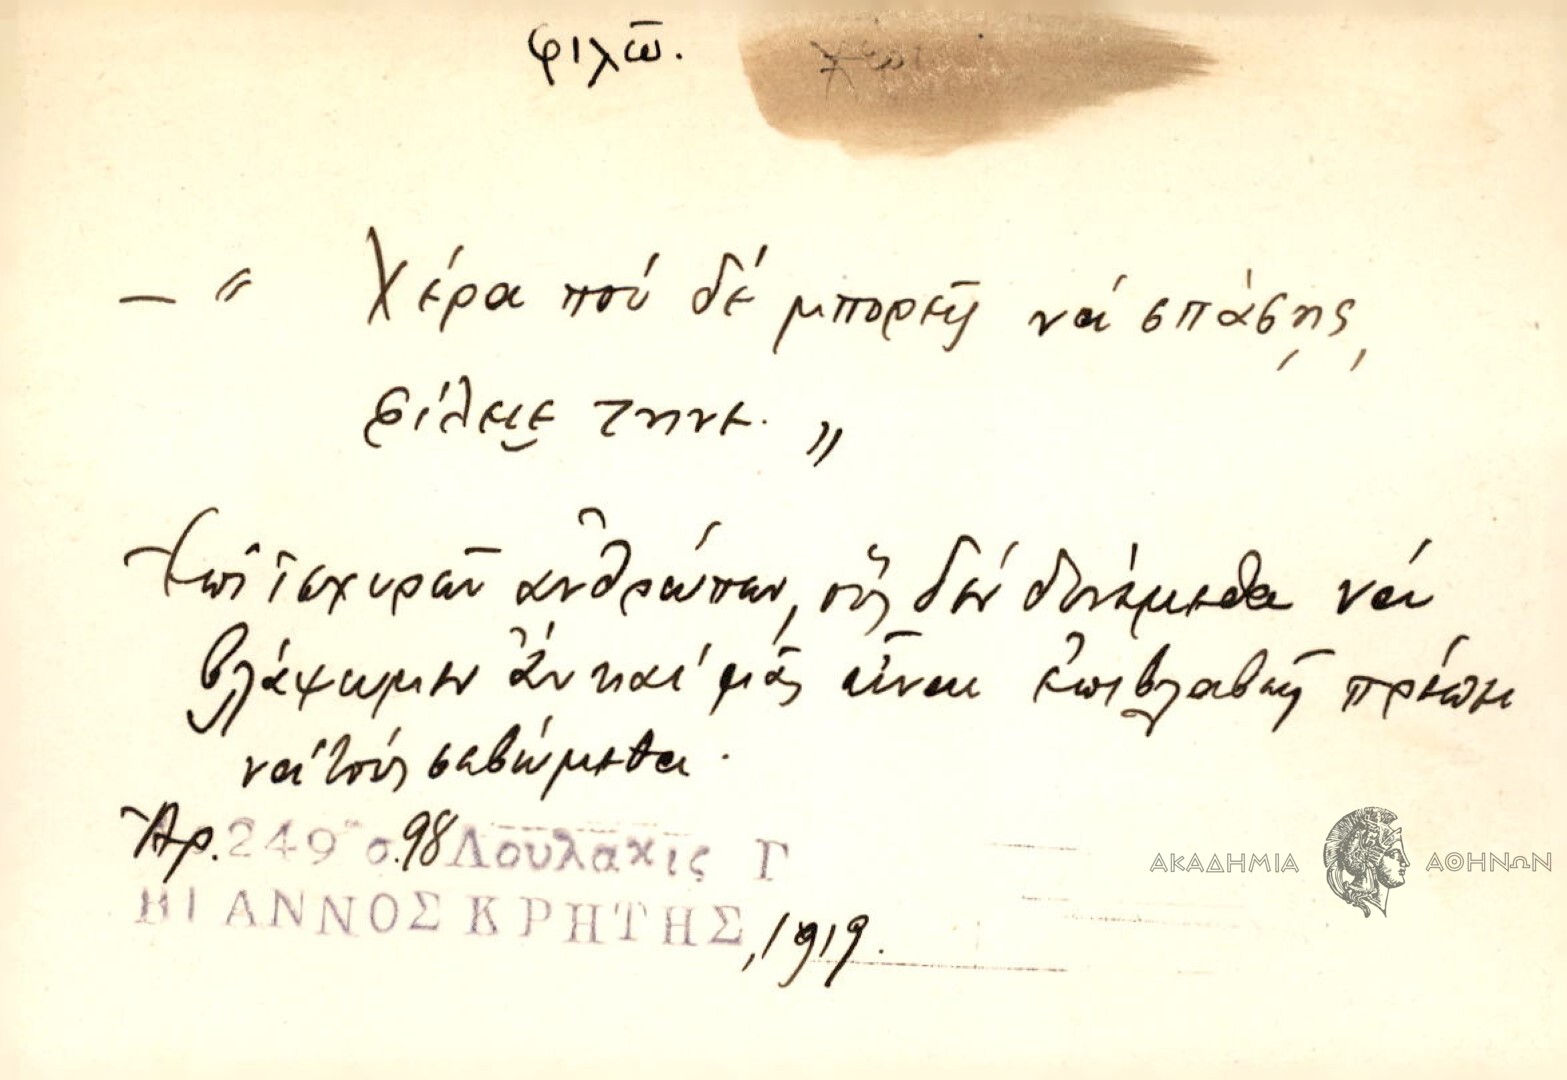 φιλῶ.
— " Χέρα πού δέ μπορεῖς νά σπάσῃς,
φίλειε τηνε. "
Ἐπί ἰσχυρῶν ἀνθρώπων, τούς ὁποίους δέν δυνάμεθα νά
βλάψωμεν ἄν καί μᾶς εἶναι ἐπιβλαβεῖς πρέπει
νά τούς σεβώμεθα.
Ἀρ. 249 σ. 98 Λουλακις Γ
ΒΙΑΝΝΟΣ ΚΡΗΤΗΣ, 1919.
ΑΚΑΔΗΜΙΑ ΑΘΗΝΩΝ